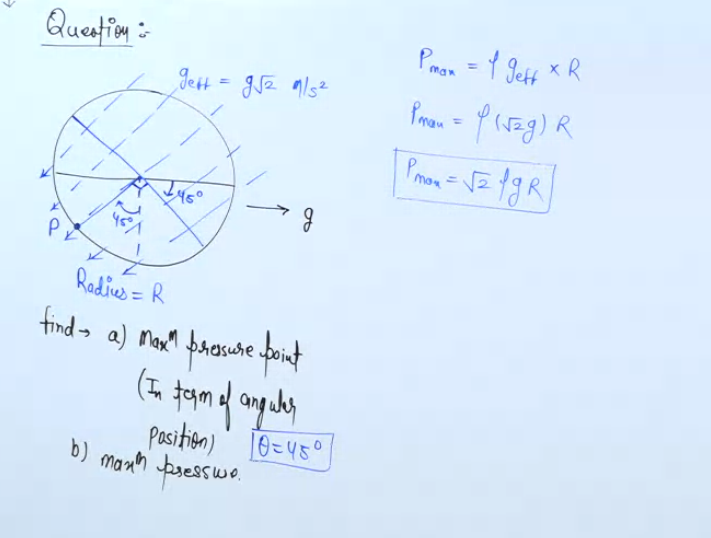 Question :-
geff = g√2 m/s²
45°
45°
P
g
Radius = R
find → a) maxᵐ pressure point
(In term of angular
position)
θ = 45°
b) maxᵐ pressure.
Pmax = ρ geff × R
Pmax = ρ (√2g) R
Pmax = √2 ρgR